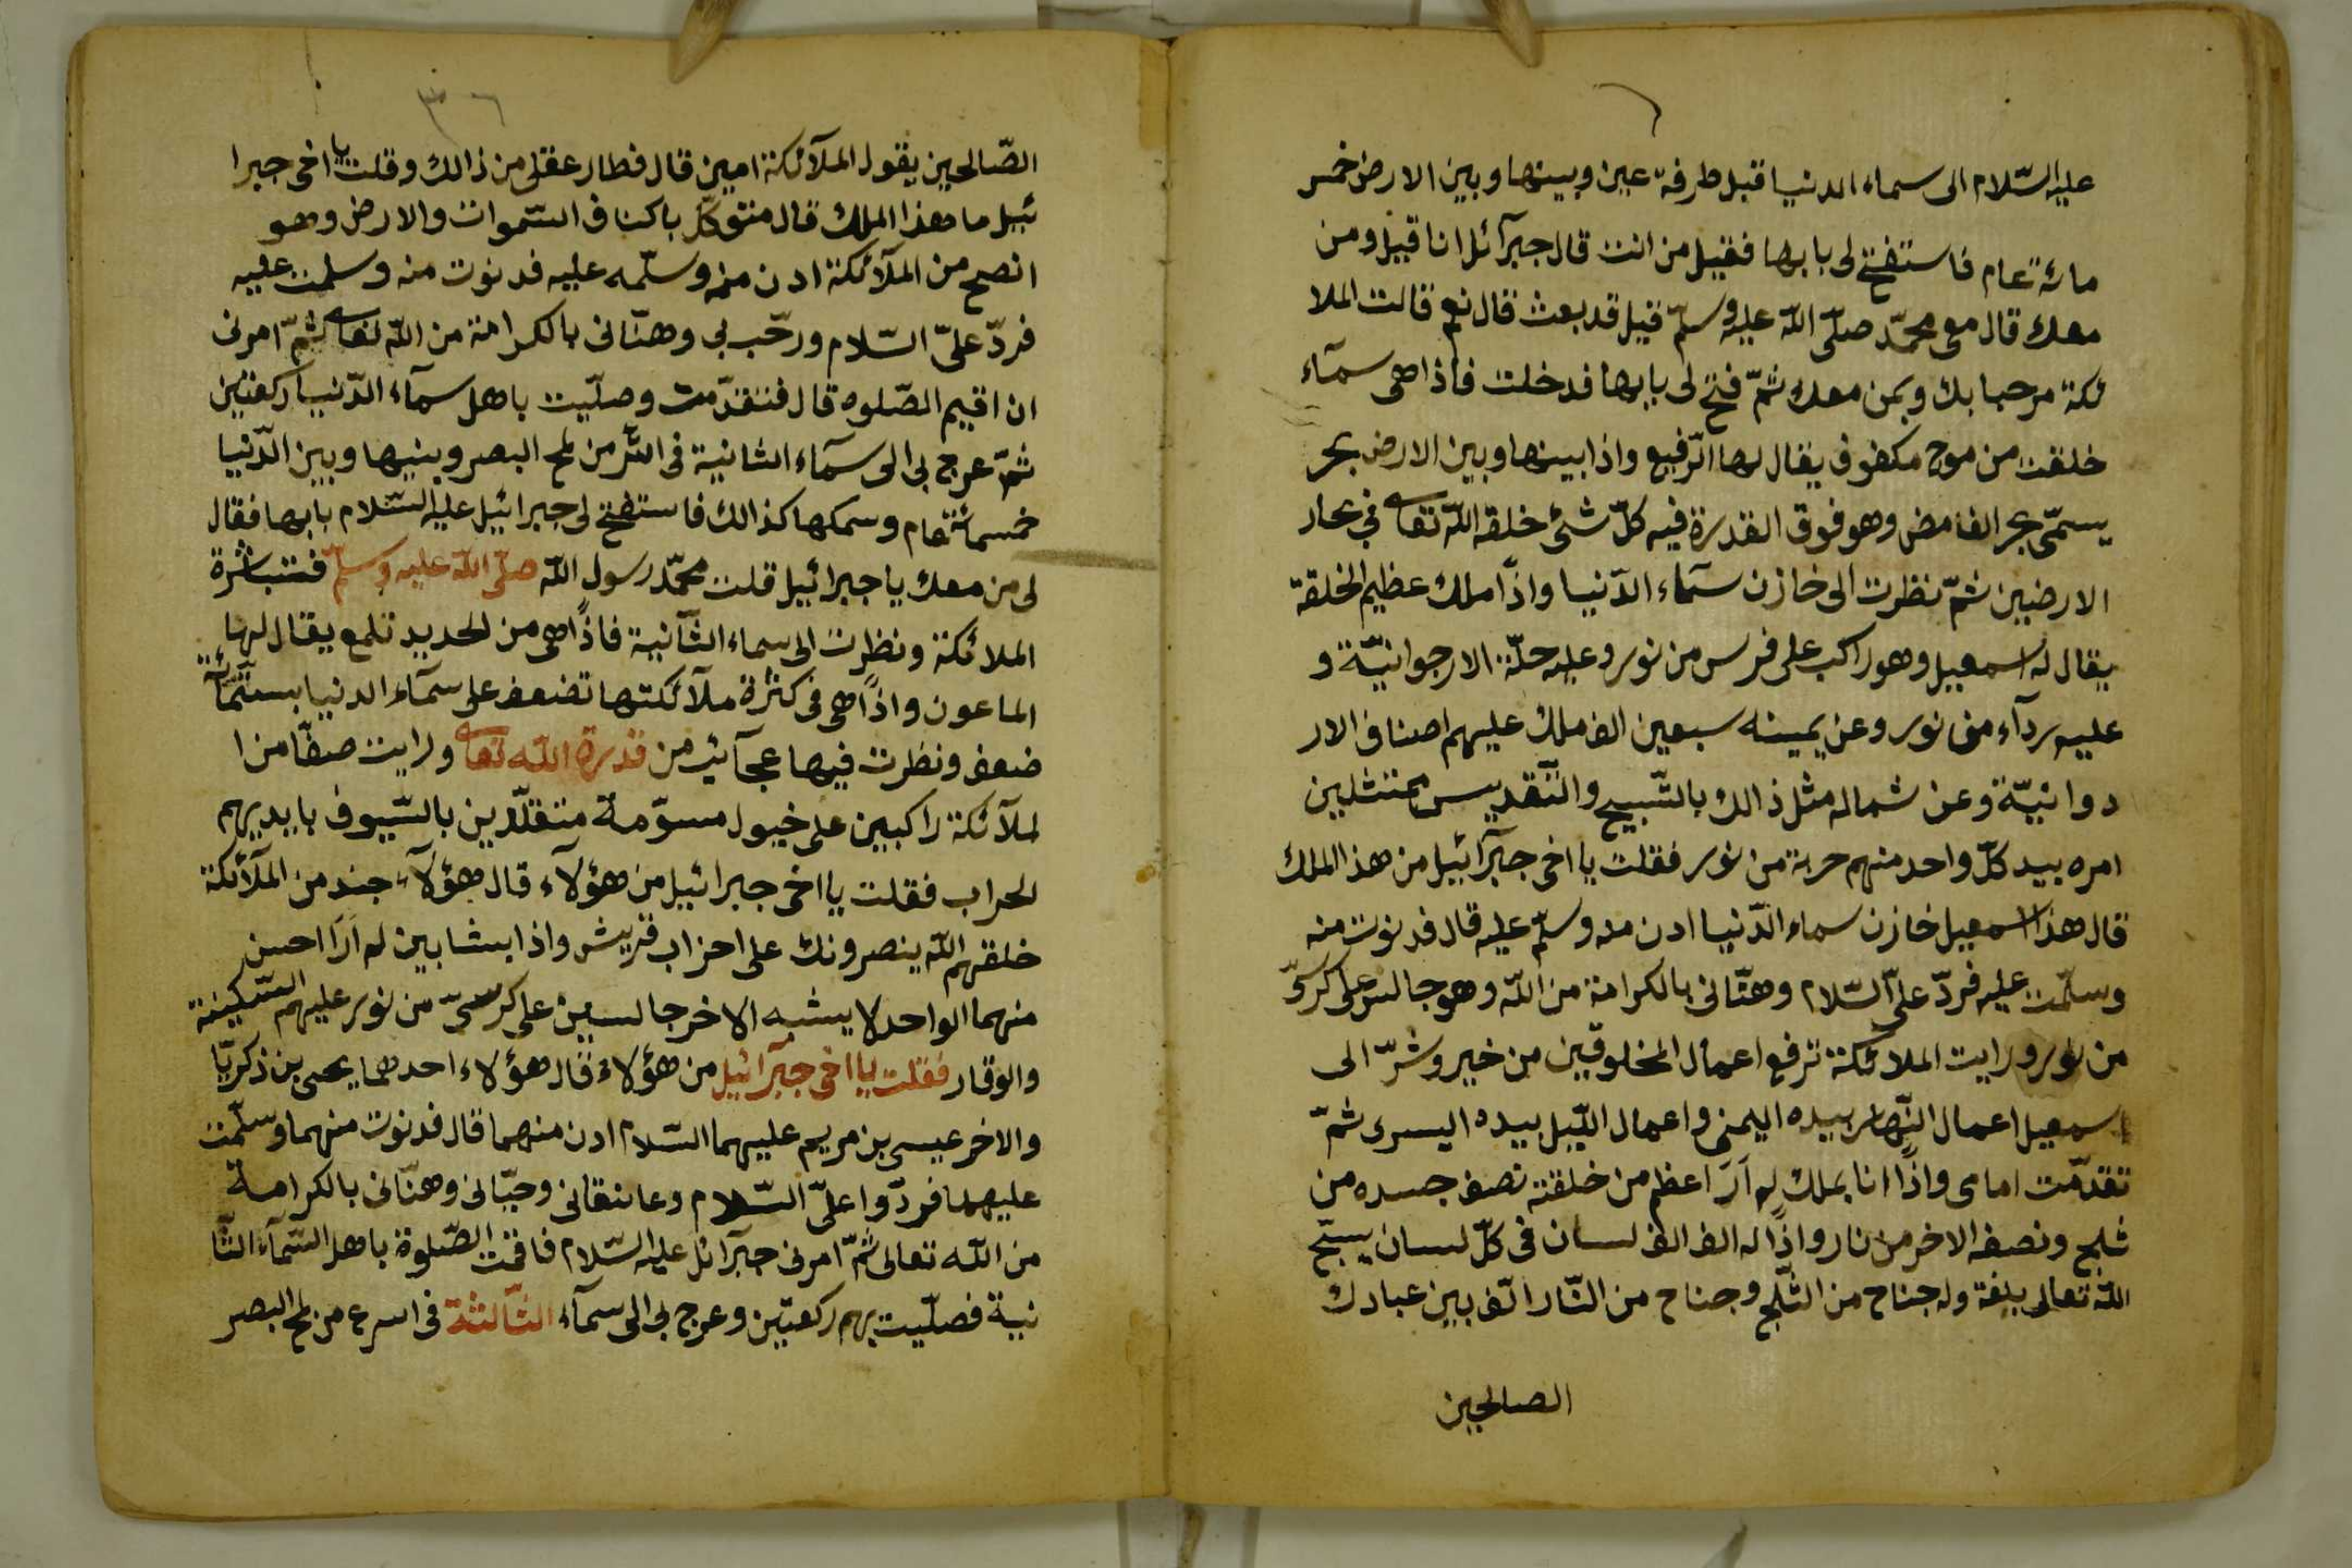 عليه السّلام الى سماء الدنيا قبل طرفة عين وبينها وبين الارض خمس
مائة عام فاستفتح لى بابها فقيل من انت قال جبرآئل انا قيل ومن
معك قال معى محمّد صلّى اللّه عليه وسلّم قيل قد بعث قال نعم قالت الملا
ئكة مرحبا بك وبمن معك ثمّ فتح لى بابها فدخلت فاذا هى سمآء
خلقت من موج مكفوف يقال لها الرّفيع واذا بينها وبين الارض بحر
يسمّى بحر الغامض وهو فوق القدرة فيه كلّ شئ خلقه اللّه تعا فى بحار
الارضين ثمّ نظرت الى خازن سمآء الدّنيا واذًا ملك عظيم الخلقة
يقال له اسمعيل وهو راكب على فرس من نور وعليه حلّة الارجوانيّة و
عليه ردآء من نور وعن يمينه سبعين الف ملك عليهم اصناف الار
دوانيّة وعن شماله مثل ذالك بالتّسبيح والتّقديس ممتثلين
امره بيد كلّ واحد منهم حربة من نور فقلت يا اخى جبرآئيل من هذا الملك
قال هذا اسمعيل خازن سماء الدّنيا ادن منه وسلّم عليه قال فدنوت منه
وسلّمت عليه فردّ علىّ السّلام وهنّانى بالكرامة من اللّه وهو جالس على كرسىّ
من نور ورايت الملائكة ترفع اعمال المخلوقين من خير وشرّ الى
اسمعيل اعمال النّهار بيده اليمنى واعمال اللّيل بيده اليسرى ثمّ
تقدّمت امامى واذًا انا بملك لم ارَ اعظم من خلقته نصف جسده من
ثلج ونصف الاخر من نار واذًا له الف الف لسان فى كلّ لسان يسبّح
اللّه تعالى بلغة وله جناح من الثّلج وجناح من النّار الّف بين عبادك
الصالحين
٣٦
الصّالحين يقول الملآئكة امين قال فطار عقلى من ذالك وقلت يا اخى جبرا
ئيل ما هذا الملك قال متوكّل باكناف السّموات والارض وهو
انصح من الملآئكة ادن منه وسلّمه عليه فدنوت منه وسلمت عليه
فردّ علىّ السّلام ورحّب بى وهنّانى بالكرامة من اللّه تعا ثمّ امرنى
ان اقيم الصّلوه قال فتقدّمت وصلّيت باهل سمآء الدّنيا ركعتين
ثمّ عرج بى الى سمآء الثانية فى اسرّ من لمح البصر وبنيها وبين الدّنيا
خمسمائة عام وسمكها كذالك فاستفتح لى جبرائيل عليه السّلام بابها فقال
لى من معك يا جبرائيل قلت محمّد رسول اللّه صلّى اللّه عليه وسلّم فتباشرة
الملائكة ونظرت الى سماء الثّانية فاذًا هى من الحديد تلمع يقال لها
الماعون واذًا هى فى كثرة ملآئكتها تضعف على سمآء الدنيا بستّمائة
ضعف ونظرت فيها عجآئب من قدرة اللّه تعا ورايت صفّا من ا
لملآئكة راكبين على خيول مسوّمة متقلّدين بالسّيوف بايديهم
الحراب فقلت يا اخى جبرائيل من هؤلآء قال هؤلآء جند من الملآئكة
خلقهم اللّه ينصرونك على احزاب قريش واذا بشابين لم ارَا احسن
منهما الواحد لا يشبه الاخر جالسين على كرسىّ من نور عليهم السّكينة
والوقار فقلت يا اخى جبرآئيل من هؤلاء قال هؤلاء احدهما يحى بن ذكريّا
والاخر عيسى بن مريم عليهما السّلام ادن منهما قال فدنوت منهما وسلّمت
عليهما فردّوا علىّ السّلام وعانقانى وحيّانى وهنّانى بالكرامة
من اللّه تعالى ثمّ امرنى جبرآئل عليه السّلام فاقمت الصّلوة باهل السّمآء الثّا
نية فصلّيت بهم ركعتين وعرج بى الى سمآء الثّالثة فى اسرع من لمح البصر